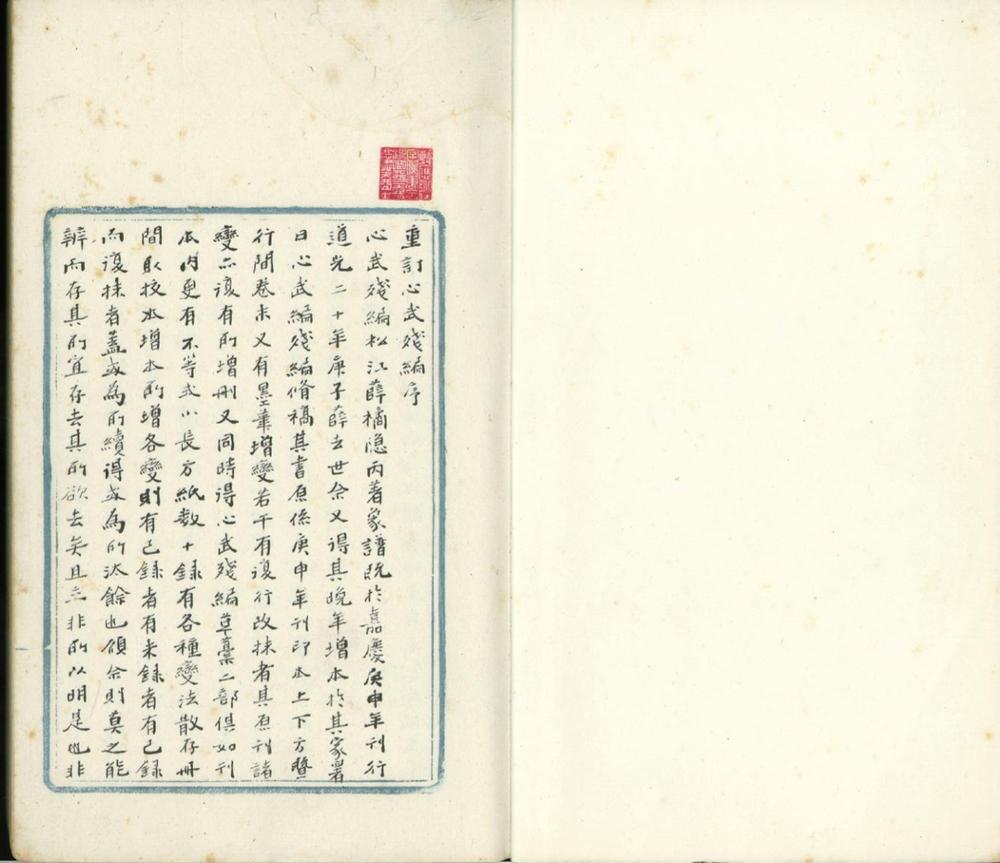 重訂心武殘編序
心武殘編松江薛橘隱丙著象譜既於嘉慶庚申年刊行
道光二十年庚子薛去世余又得其晚年增本於其家署
曰心武編殘編脩稿其書原係庚申年刊印本上下方暨
行間卷末又有墨筆增變若干有復行改抹者其原刊諸
變亦復有所增刪又同時得心武殘編草藁二部俱如刊
本內更有不等式小長方紙數十錄有各種變法散存冊
間取校水增本所增各變則有已錄者有未錄者有已錄
而復抹者蓋或為所續得或為所汰餘也顧余則莫之能
辨而存其所宜存去其所欲去矣且亦非所以明是也非